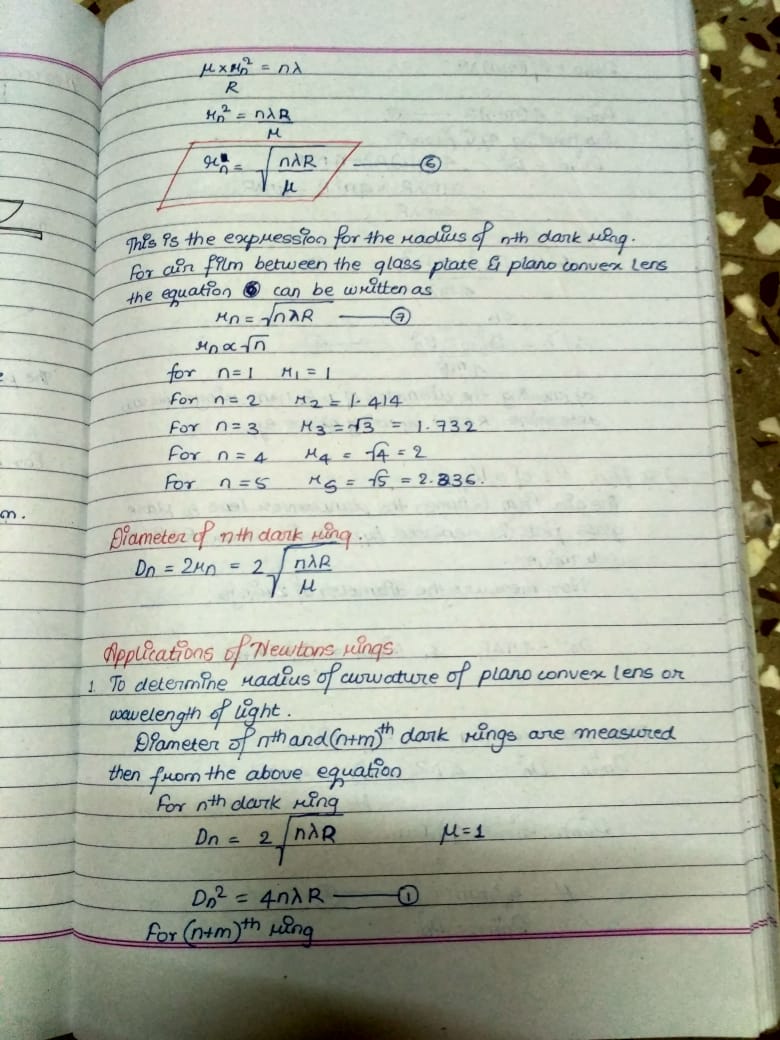 μ × r_n² = nλ
R
r_n² = nλR
μ
r_n = √(nλR / μ) —— ⑥
This is the expression for the radius of nth dark ring.
For air film between the glass plate & plano convex lens
the equation ⑥ can be written as
r_n = √nλR —— ⑦
r_n ∝ √n
for n=1 r₁ = 1
For n=2 r₂ = 1.414
For n=3 r₃ = √3 = 1.732
For n=4 r₄ = √4 = 2
For n=5 r₅ = √5 = 2.236.
m.
Diameter of nth dark ring.
D_n = 2r_n = 2√(nλR / μ)
Applications of Newtons rings
1. To determine radius of curvature of plano convex lens or
wavelength of light.
Diameter of nth and (n+m)th dark rings are measured
then from the above equation
For nth dark ring
D_n = 2√nλR μ=1
D_n² = 4nλR —— ①
For (n+m)th ring